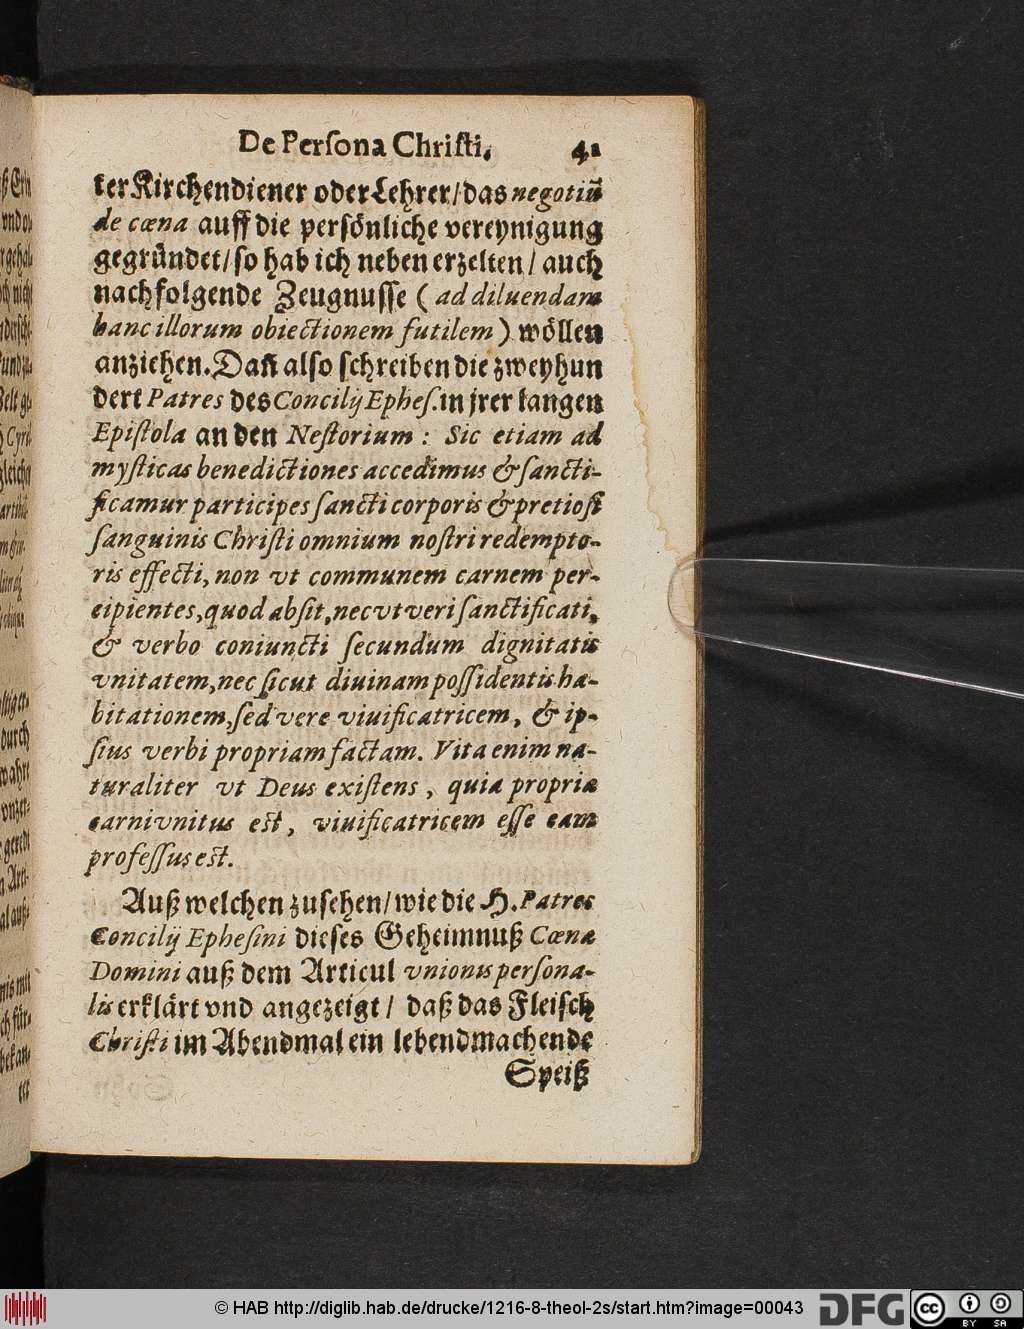 De Perſona Chriſti. 41
ter Kirchendiener oder Lehrer/ das negotiũ
de cœna auff die perſönliche vereynigung
gegründet/ ſo hab ich neben erzelten/ auch
nachfolgende Zeugnuſſe ( ad diluendam
hanc illorum obiectionem futilem ) wöllen
anziehen. Dañ alſo ſchreiben die zweyhun
dert Patres des Concilij Epheſ. in jrer langen
Epiſtola an den Neſtorium : Sic etiam ad
myſticas benedictiones accedimus & ſancti-
ficamur participes ſancti corporis & pretioſi
ſanguinis Chriſti omnium noſtri redempto-
ris effecti, non vt communem carnem per-
cipientes, quod abſit, nec vt veri ſanctificati,
& verbo coniuncti ſecundum dignitatis
vnitatem, nec ſicut diuinam poſſidentis ha-
bitationem, ſed vere viuificatricem, & ip-
ſius verbi propriam factam. Vita enim na-
turaliter vt Deus exiſtens, quia propriæ
carni vnitus eſt, viuificatricem eſſe eam
profeſſus eſt.
Auß welchen zuſehen/ wie die H. Patres
Concilij Epheſini dieſes Geheimnuß Cœnæ
Domini auß dem Articul vnionis perſona-
lis erklärt vnd angezeigt/ daß das Fleiſch
Chriſti im Abendmal ein lebendmachende
Speiß
© HAB http://diglib.hab.de/drucke/1216-8-theol-2s/start.htm?image=00043
DFG
cc BY SA